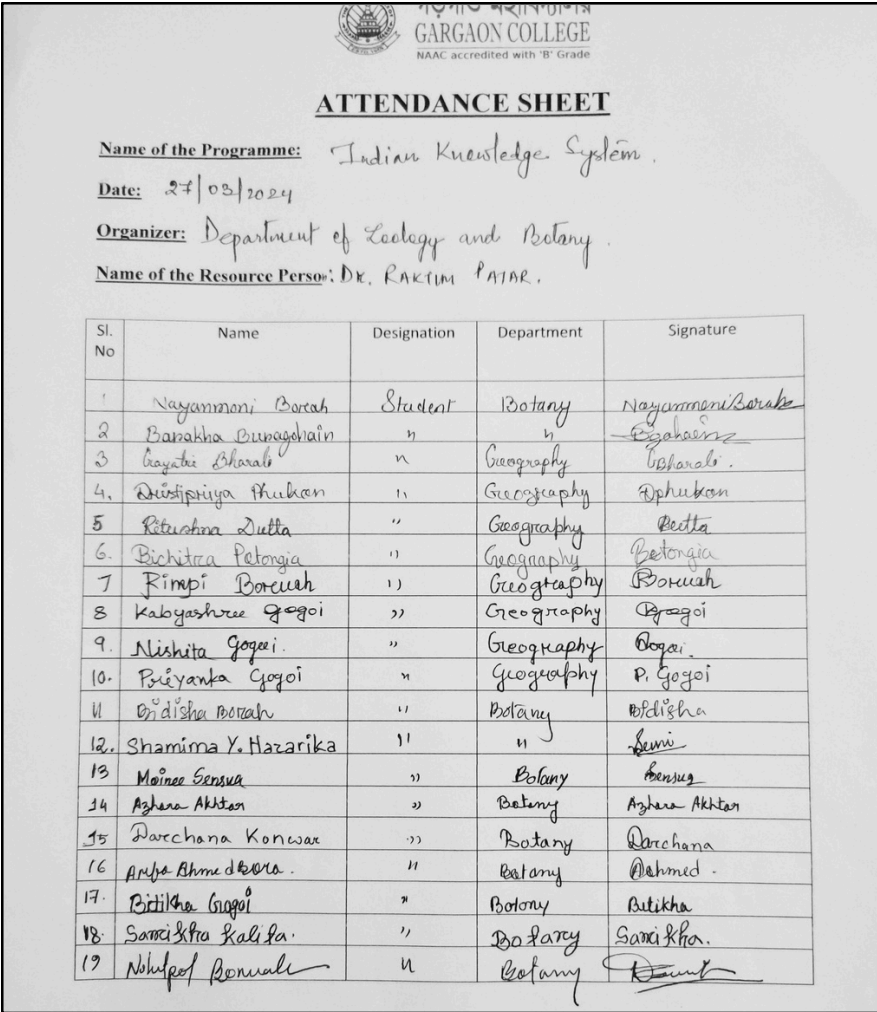 গড়গাঁও মহাবিদ্যালয়
GARGAON COLLEGE
NAAC accredited with 'B' Grade
ATTENDANCE SHEET
Name of the Programme: Indian Knowledge System.
Date: 27/03/2024
Organizer: Department of Zoology and Botany.
Name of the Resource Person: DR. RAKTIM PATAR.
Sl. No Name Designation Department Signature
1 Nayanmoni Borah Student Botany Nayanmoni Borah
2 Barakha Buragohain " "
3 Gayatri Bharali " Geography GBharali.
4. Dristipriya Phukan " Geography Dphukan
5 Ritushna Dutta " Geography Dutta
6. Bichitra Patongia " Geography Batongia
7 Rimpi Boruah " Geography Boruah
8 Kabyashree Gogoi " Geography Gogoi
9. Nishita Gogoi. " Geography Gogoi.
10. Priyanka Gogoi " Geography P. Gogoi
11 Bidisha Borah " Botany Bidisha
12. Shamima Y. Hazarika " "
13 Moinee Sensua " Botany Sensua
14 Azhara Akhtar " Botany Azhara Akhtar
15 Darchana Konwar " Botany Darchana
16 Ahmed Bora. " Botany Aahmed.
17. Bitikha Gogoi " Botony Bitikha
18. Sanrikha Kalita. " Botany Sanrikha.
19 Boruah " Botany